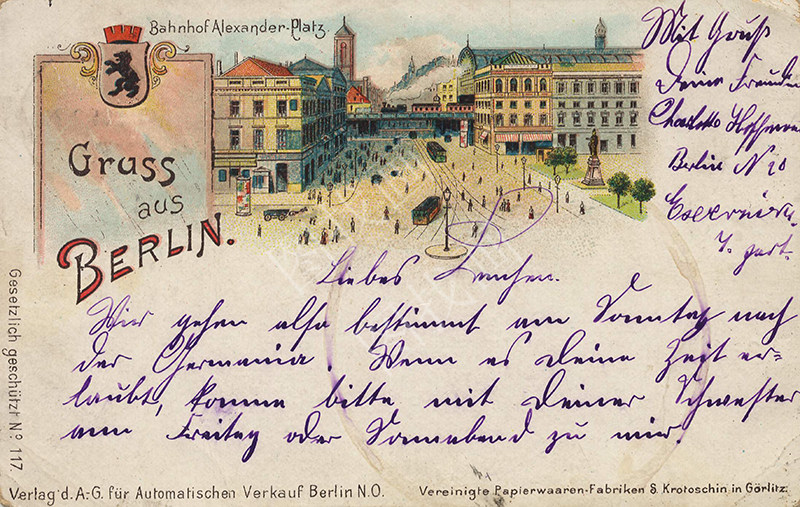 Bahnhof Alexander-Platz.
Gruss
aus
BERLIN.
Mit Gruß
Deine Freundin
Charlotte
Berlin N 20
4. part.
Liebes Lenchen.
Wir gehen also bestimmt am Sonntag nach
der Germania. Wenn es deine Zeit er=
laubt, komme bitte mit deiner Schwester
am Freitag oder Sonnabend zu mir.
Gesetzlich geschützt No. 117.
Verlag d. A.-G. für Automatischen Verkauf Berlin N.O.
Vereinigte Papierwaaren-Fabriken S. Krotoschin in Görlitz.